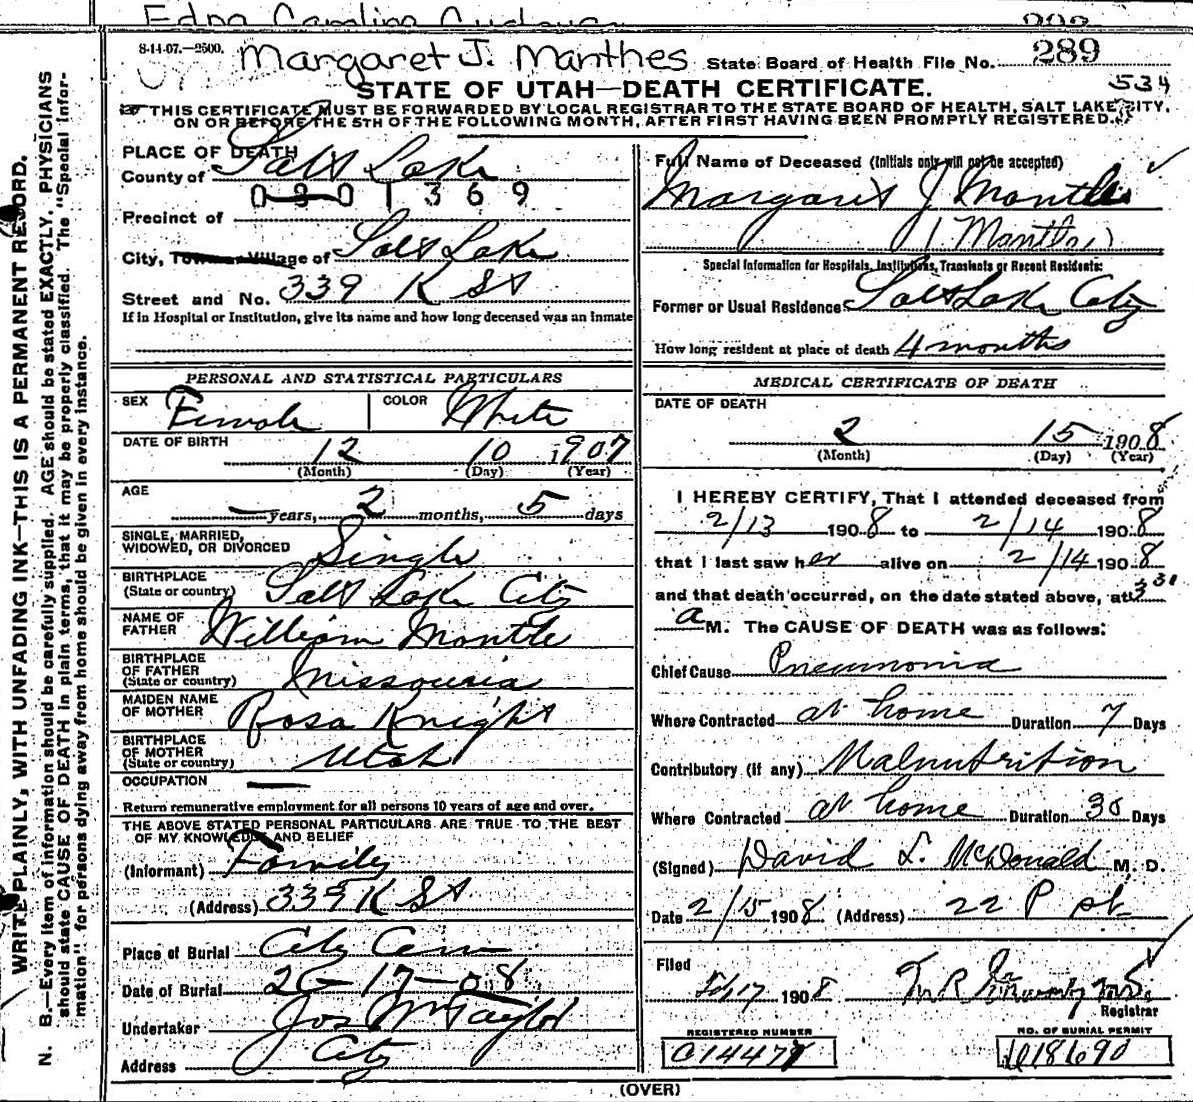 Edna Caroline
8-14-07.—2500. Margaret J. Manthes State Board of Health File No. 289
STATE OF UTAH—DEATH CERTIFICATE. 534
THIS CERTIFICATE MUST BE FORWARDED BY LOCAL REGISTRAR TO THE STATE BOARD OF HEALTH, SALT LAKE CITY,
ON OR BEFORE THE 5TH OF THE FOLLOWING MONTH, AFTER FIRST HAVING BEEN PROMPTLY REGISTERED.
WRITE PLAINLY, WITH UNFADING INK—THIS IS A PERMANENT RECORD.
N. B.—Every item of information should be carefully supplied. AGE should be stated EXACTLY. PHYSICIANS
should state CAUSE OF DEATH in plain terms, that it may be properly classified. The "Special Infor-
mation" for persons dying away from home should be given in every instance.
PLACE OF DEATH
County of Salt Lake
0801369
Precinct of
City, Town or Village of Salt Lake
Street and No. 339 K St
If in Hospital or Institution, give its name and how long deceased was an inmate
PERSONAL AND STATISTICAL PARTICULARS
SEX Female COLOR White
DATE OF BIRTH 12 10 1907
(Month) (Day) (Year)
AGE
— years, 2 months, 5 days
SINGLE, MARRIED,
WIDOWED, OR DIVORCED Single
BIRTHPLACE
(State or country) Salt Lake City
NAME OF
FATHER William Manthe
BIRTHPLACE
OF FATHER
(State or country) Missouria
MAIDEN NAME
OF MOTHER Rosa Knight
BIRTHPLACE
OF MOTHER
(State or country) Utah
OCCUPATION —
Return remunerative employment for all persons 10 years of age and over.
THE ABOVE STATED PERSONAL PARTICULARS ARE TRUE TO THE BEST
OF MY KNOWLEDGE AND BELIEF
(Informant) Family
(Address) 339 K St
Place of Burial City Cem
Date of Burial 2-17-08
Undertaker Jos Wm Taylor
Address City
Full Name of Deceased (Initials only will not be accepted)
Margaret J Manthe
(Manthe)
Special Information for Hospitals, Institutions, Transients or Recent Residents:
Former or Usual Residence Salt Lake City
How long resident at place of death 4 months
MEDICAL CERTIFICATE OF DEATH
DATE OF DEATH
2 15 1908
(Month) (Day) (Year)
I HEREBY CERTIFY, That I attended deceased from
2/13 1908 to 2/14 1908
that I last saw her alive on 2/14 1908
and that death occurred, on the date stated above, at 3 30
a M. The CAUSE OF DEATH was as follows:
Chief Cause Pneumonia
Where Contracted at home Duration 7 Days
Contributory (if any) Malnutrition
Where Contracted at home Duration 30 Days
(Signed) David L. McDonald M. D.
Date 2/15 1908 (Address) 22 P st
Filed
Feb 17 1908
Registrar
REGISTERED NUMBER
C14477
NO. OF BURIAL PERMIT
(OVER)